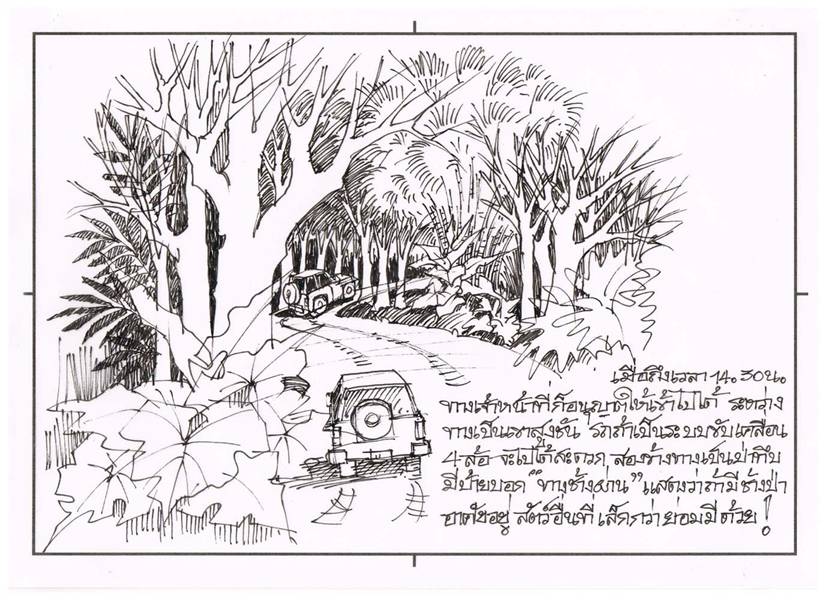 เมื่อถึงเวลา 14.30น.
ทางเจ้าหน้าที่ก็อนุญาตให้เข้าไปได้ ระหว่าง
ทางเป็นเขาสูงชัน รถถ้าเป็นระบบขับเคลื่อน
4 ล้อ จะไปได้สะดวก สองข้างทางเป็นป่าทึบ
มีป้ายบอก "ทางช้างผ่าน" แสดงว่าถ้ามีช้างป่า
อาศัยอยู่ สัตว์อื่นที่เล็กกว่าย่อมมีด้วย!